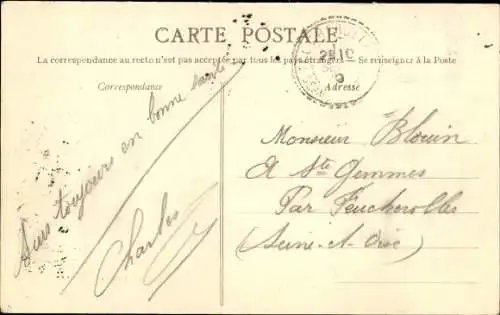 CARTE POSTALE
La correspondance au recto n'est pas acceptée par tous les pays étrangers. — Se renseignez à la Poste
Correspondance
Adresse
suis toujours en bonne santé
Charles
Monsieur Blouin
A Ste Gemmes
Par Feucherolles
(Seine-et-Oise)